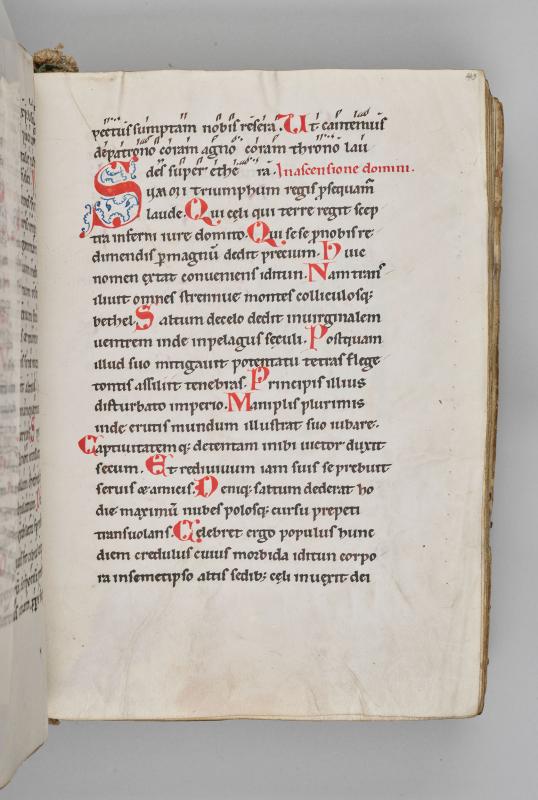 pectus sumptam nobis resera. Ut cantemus
de patrono coram agno coram throno lau
des super ethe ra. In ascensione domini.
Summi triumphum regis psequam̄
laude. Qui cęli qui terre regit scep
tra inferni iure domito. Qui sese pnobis re
dimendis pmagnū dedit precium. Huic
nomen extat conueniens iditun. Nam trans
iliuit omnes strennue montes colliculosq;
bethel. Saltum decelo dedit inuirginalem
uentrem inde inpelagus sęculi. Postquam
illud suo mitigauit potentatu tetras flege
tontis assiliit tenebras. Principis illius
disturbato imperio. Maniplis plurimis
inde erutis mundum illustrat suo iubare.
Captiuitatemq; detentam inibi uictor duxit
secum. Et rediuiuum iam suis se prebuit
seruis & amicis. Deniq; saltum dederat ho
die maximū nubes polosq; cursu prepeti
transuolans. Celebret ergo populus hunc
diem credulus cuius morbida iditun corpo
ra insemetipso altis sedib; cęli inuexit dei